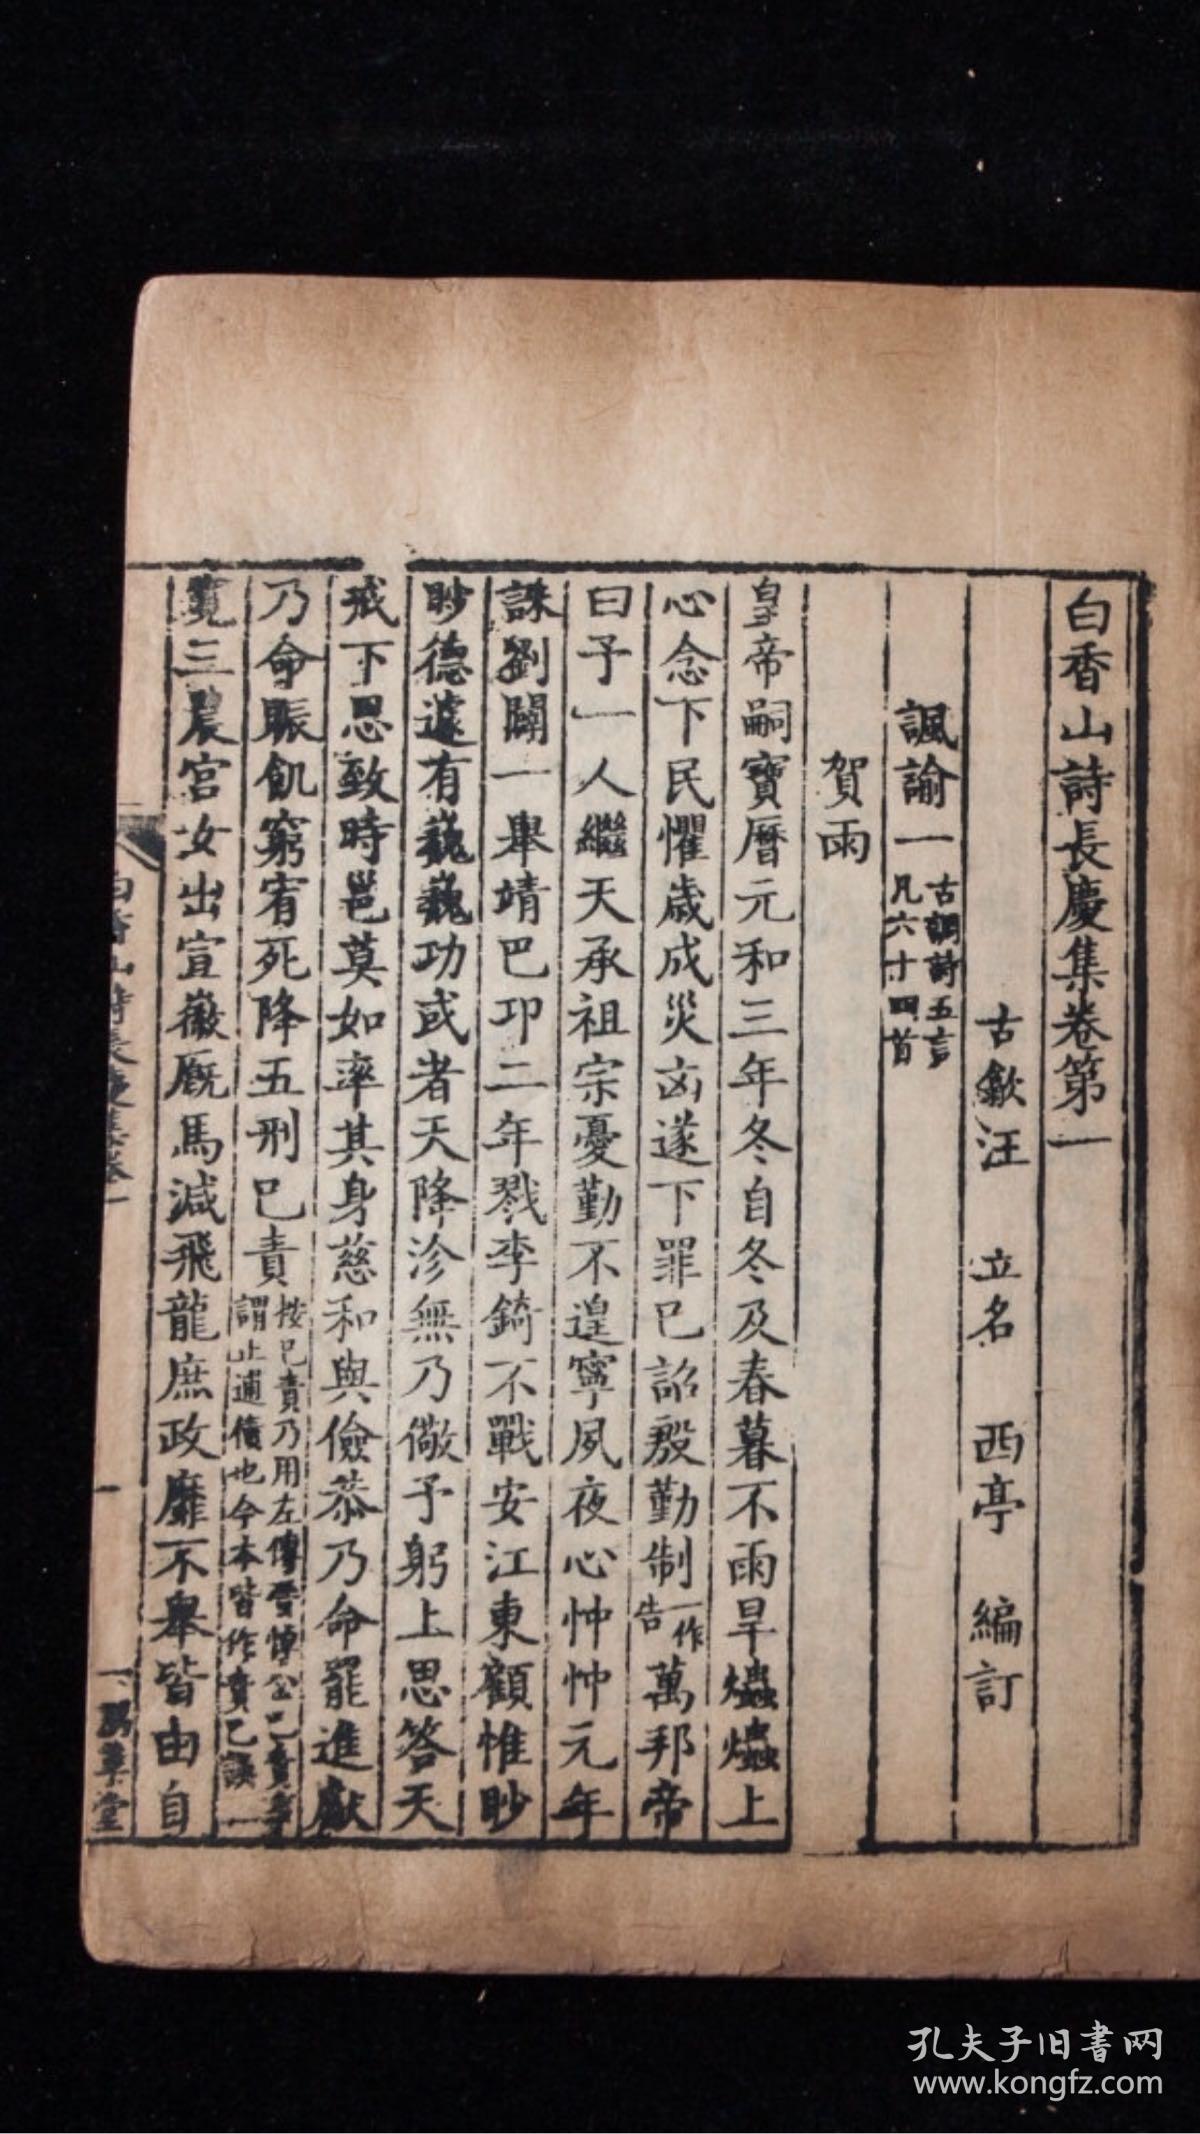 白香山詩長慶集卷第一
古歙汪 立名 西亭 編訂
諷諭一 古調詩五言
凡六十四首
賀雨
皇帝嗣寶曆元和三年冬自冬及春暮不雨旱爞爞上
心念下民懼歲成災凶遂下罪巳詔殷勤制一作告萬邦帝
曰予一人繼天承祖宗憂勤不遑寧夙夜心忡忡元年
誅劉闢一舉靖巴邛二年戮李錡不戰安江東顧惟眇
眇德遽有巍巍功或者天降沴無乃儆予躬上思答天
戒下思致時邕莫如率其身慈和與儉恭乃命罷進獻
乃命賑飢窮宥死降五刑巳責按巳責乃用左傳晉悼公巳責事
謂止逋債也今本皆作責巳誤一
寬三農宮女出宣徽厩馬減飛龍庶政靡不舉皆由自
白香山詩長慶集卷一
一
一隅草堂
孔夫子旧书网
www.kongfz.com